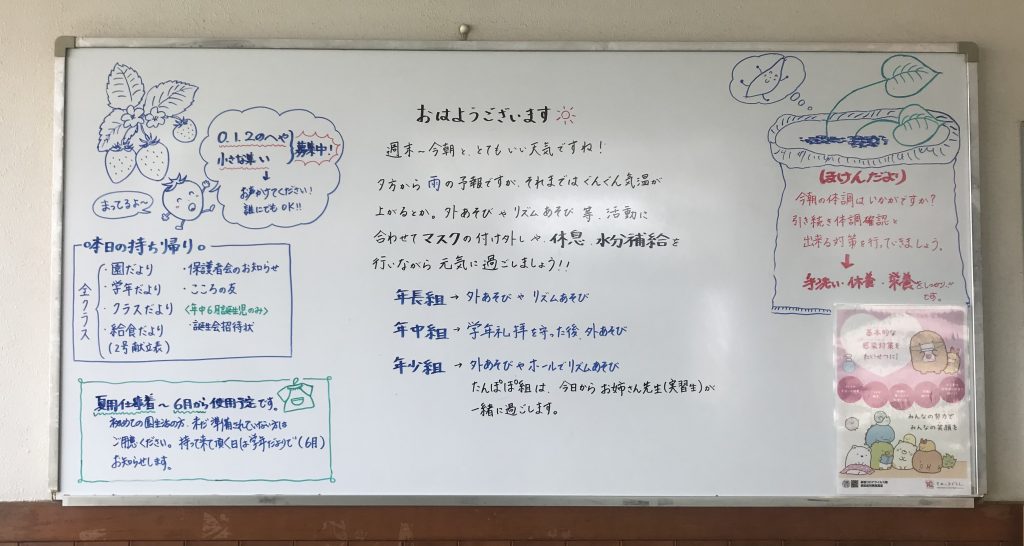 0.1.2のへや
小さな集い
募集中！
お声かけてください！
誰にでもOK!!
まってるよ〜
本日の持ち帰り
全クラス
・園だより
・学年だより
・クラスだより
・給食だより
(2号献立表)
・保護者会のお知らせ
・こころの友
〈年中6月誕生児のみ〉
・誕生会招待状
夏用仕事着〜6月から使用予定です。
初めての園生活の方、未だ準備されていない方は
ご用意ください。持って来て頂く日は学年だよりで(6月)
お知らせします。
おはようございます
週末〜今朝と、とてもいい天気ですね！
夕方から雨の予報ですが、それまではぐんぐん気温が
上がるとか。外あそびやリズムあそび等、活動に
合わせてマスクの付け外しや、休息、水分補給を
行いながら元気に過ごしましょう!!
年長組→外あそびやリズムあそび
年中組→学年礼拝を守った後、外あそび
年少組→外あそびやホールでリズムあそび
たんぽぽ組は、今日からお姉さん先生(実習生)が
一緒に過ごします。
(ほけんだより)
今朝の体調はいかがですか？
引き続き体調確認と
出来る対策を行っていきましょう。
↓
手洗い・休養・栄養をしっかり!!
です。
基本的な
感染対策を
たいせつに！
みんなの努力で
みんなの笑顔を